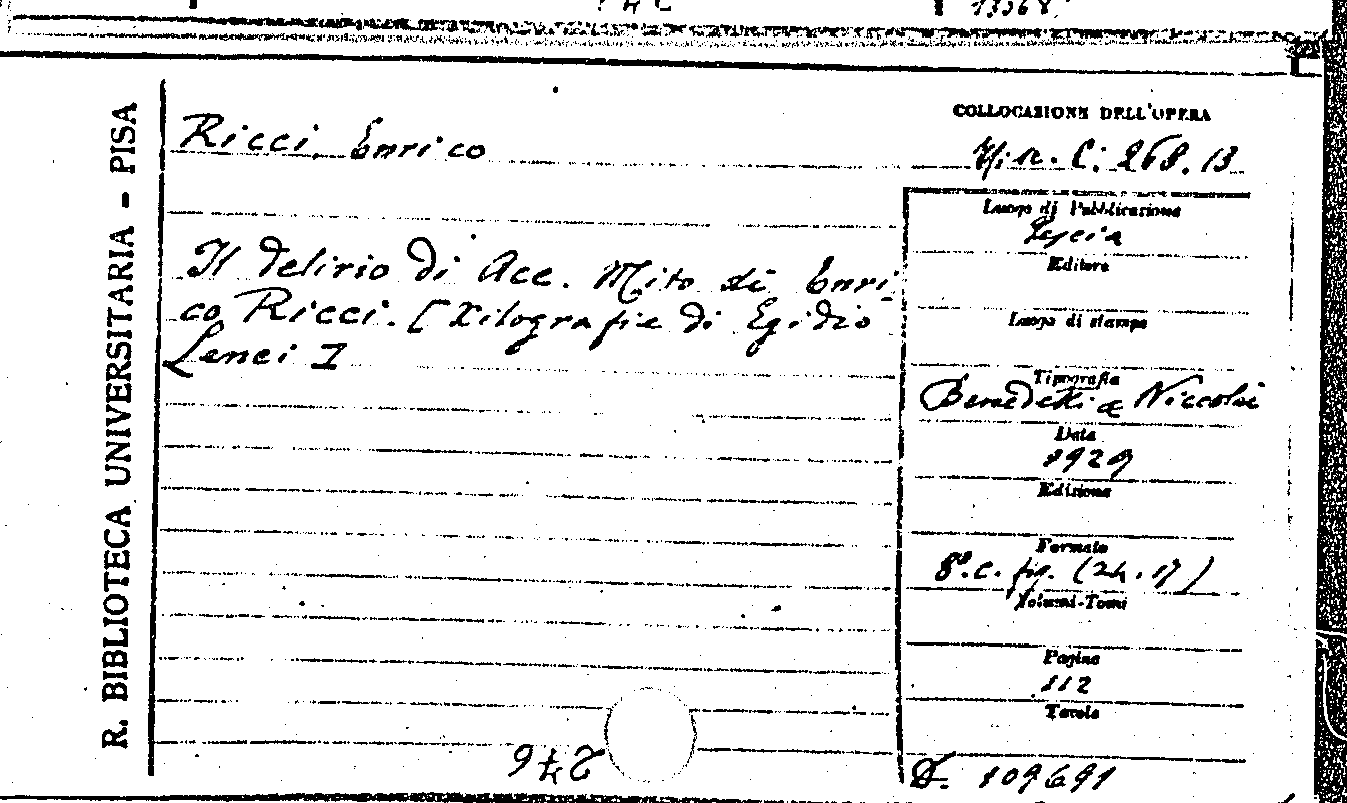 13368
R. BIBLIOTECA UNIVERSITARIA - PISA
Ricci Enrico
Il delirio di Ace. Mito di Enri-
co Ricci. [Xilografie di Egidio
Lenci]
246
COLLOCAZIONE DELL'OPERA
Misc. C. 268. 13
Luogo di Pubblicazione
Pescia
Editore
Luogo di stampa
Tipografia
Benedetti e Niccolai
Data
1929
Edizione
Formato
8º. c. fig. (24.17)
Volumi-Tomi
Pagine
112
Tavole
D. 109691